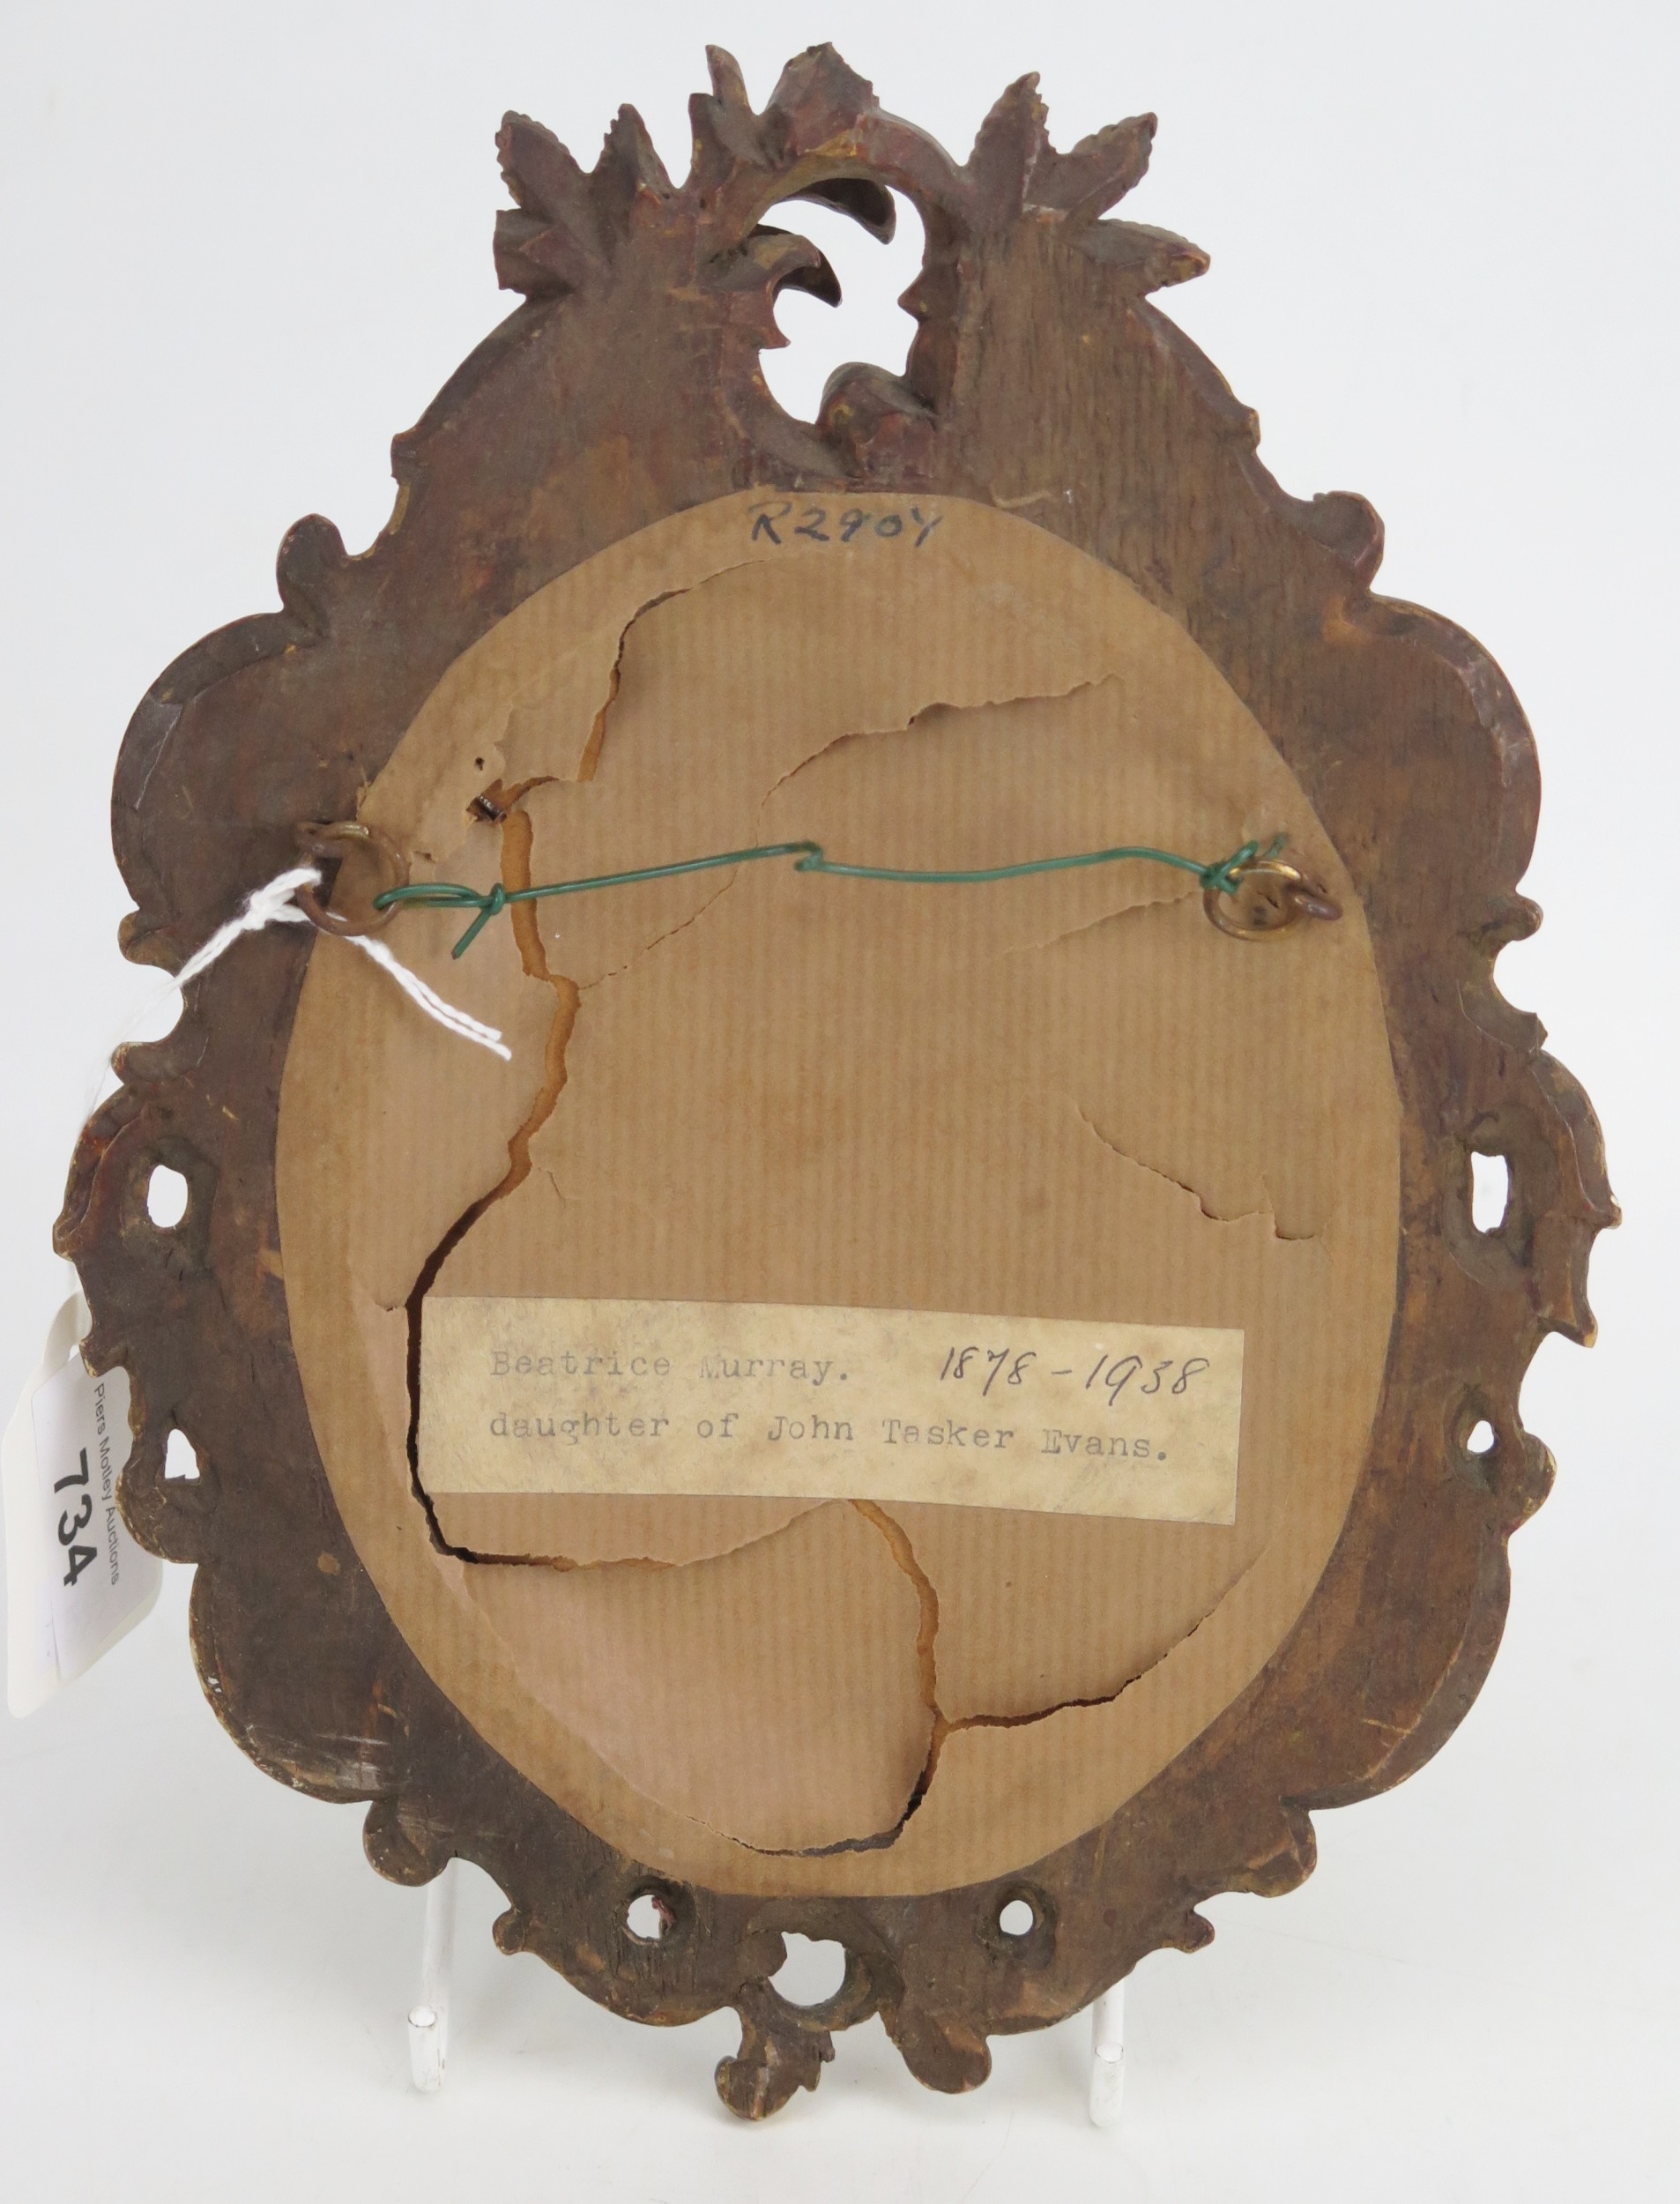 R2904
Beatrice Murray. 1878-1938
daughter of John Tasker Evans.
Piers Motley Auctions
734